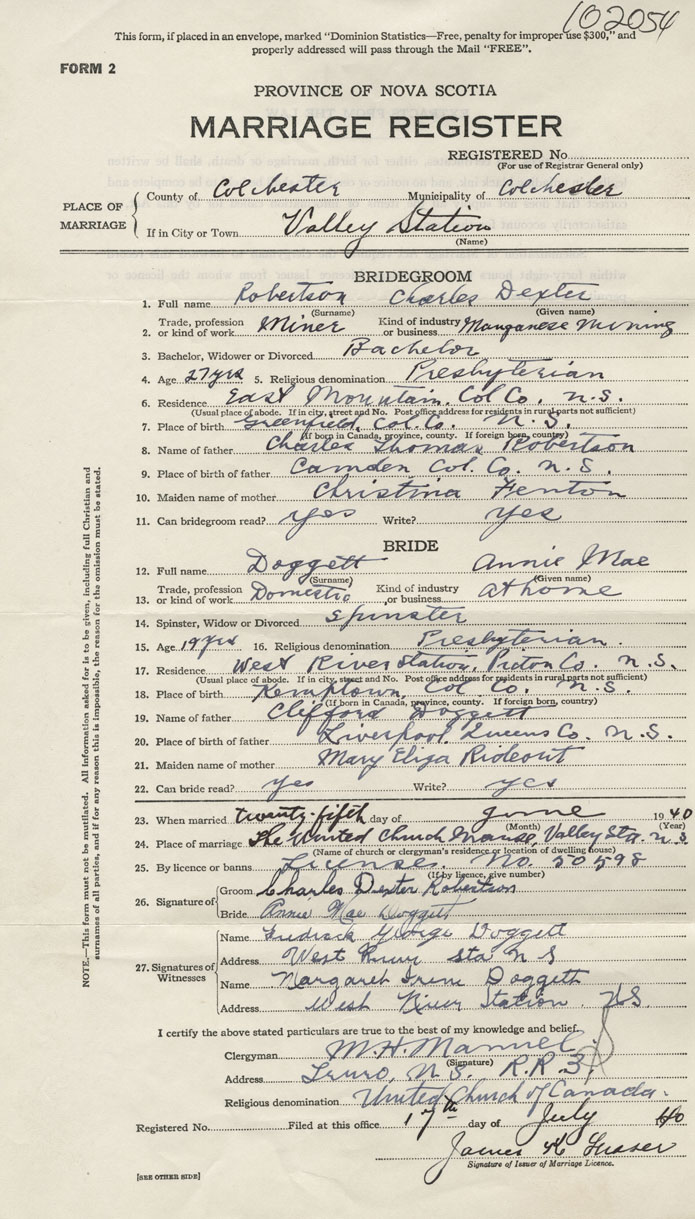 102054
This form, if placed in an envelope, marked "Dominion Statistics—Free, penalty for improper use $300," and
properly addressed will pass through the Mail "FREE".
FORM 2
PROVINCE OF NOVA SCOTIA
MARRIAGE REGISTER
REGISTERED No.
(For use of Registrar General only)
PLACE OF MARRIAGE
County of Colchester Municipality of Colchester
If in City or Town Valley Station
(Name)
BRIDEGROOM
1. Full name Robertson Charles Dexter
(Surname) (Given name)
2. Trade, profession or kind of work Miner Kind of industry or business Manganese Mining
3. Bachelor, Widower or Divorced Bachelor
4. Age 27 yrs 5. Religious denomination Presbyterian
6. Residence East Mountain. Col Co. N.S.
(Usual place of abode. If in city, street and No. Post office address for residents in rural parts not sufficient)
7. Place of birth Greenfield, Col. Co. N.S.
(If born in Canada, province, county. If foreign born, country)
8. Name of father Charles Thomas Robertson
9. Place of birth of father Camden Col. Co. N.S.
10. Maiden name of mother Christina Fenton
11. Can bridegroom read? yes Write? yes
BRIDE
12. Full name Doggett Annie Mae
(Surname) (Given name)
13. Trade, profession or kind of work Domestic Kind of industry or business at home
14. Spinster, Widow or Divorced Spinster
15. Age 19 yrs 16. Religious denomination Presbyterian.
17. Residence West River Station, Pictou Co. N.S.
(Usual place of abode. If in city, street and No. Post office address for residents in rural parts not sufficient)
18. Place of birth Kemptown, Col Co. N.S.
(If born in Canada, province, county. If foreign born, country)
19. Name of father Clifford Doggett
20. Place of birth of father Liverpool, Queens Co. N.S.
21. Maiden name of mother Mary Eliza Rideout
22. Can bride read? yes Write? yes
23. When married twenty-fifth day of June 1940
(Month) (Year)
24. Place of marriage The United Church Manse, Valley Sta. N.S.
(Name of church or clergyman's residence or location of dwelling house)
25. By licence or banns License. No. 50598
(If by licence, give number)
26. Signature of
Groom Charles Dexter Robertson
Bride Annie Mae Doggett
27. Signatures of Witnesses
Name George Doggett
Address West River Sta N S
Name Margaret Irene Doggett
Address West River Station N.S.
I certify the above stated particulars are true to the best of my knowledge and belief.
Clergyman M. H. Manuel.
(Signature)
Address Truro, N.S. R.R. 3
Religious denomination United Church of Canada.
Registered No. Filed at this office 17th day of July 40
James Fraser
Signature of Issuer of Marriage Licence.
[SEE OTHER SIDE]
NOTE.—This form must not be mutilated. All information asked for is to be given, including full Christian and
surnames of all parties, and if for any reason this is impossible, the reason for the omission must be stated.